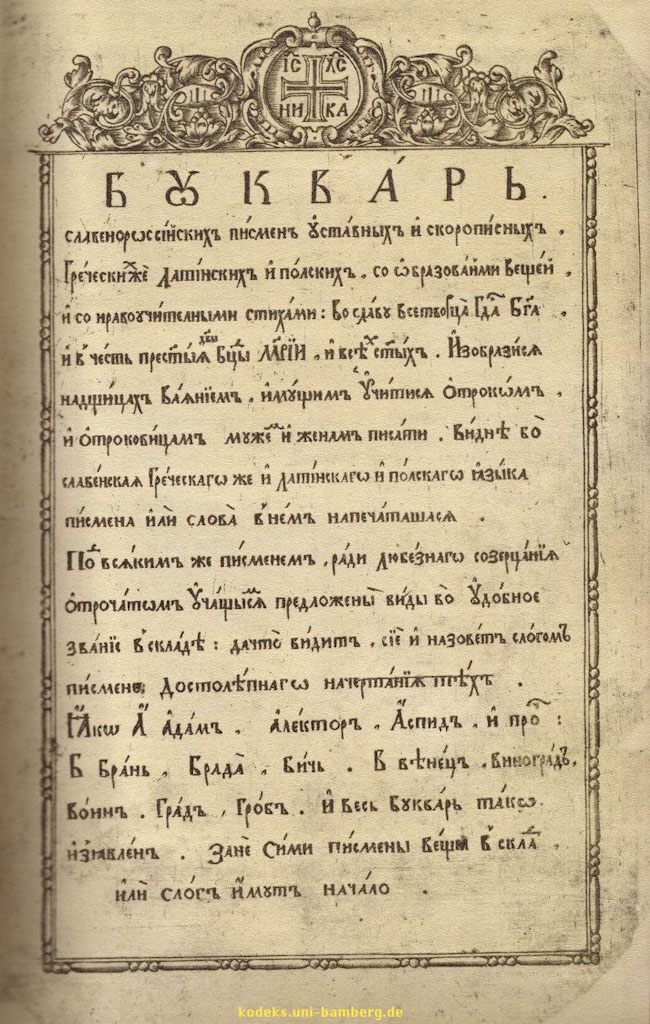 ІС ХС
НИ КА
БꙊКВА́РЬ.
славеноросси́йскихъ пи́сменъ ᲂу҆ста́вныхъ и҆ скоропи́сныхъ ,
Гре́ческихже Лати́нскихъ и҆ по́лскихъ , со ѡ҆бразова́нми веще́й ,
и҆ со нравоучи́телными стиха́ми : во сла́ву всетвоⷬ҇ца̀ Гдⷭ҇а̀ Бг҃а ,
и҆ в̾ че́сть престы́ѧ дв҃ы Бц҃ы МАРІ́И , и҆ всѣ́ⷯ ст҃ы́хъ . И҆зобрази́сѧ
надщи́цахъ ваѧ́нїемъ , и҆мꙋ́щимъ ᲂу҆чи́тисѧ ѻ҆трокѡ́мъ ,
и҆ ѻ҆трокови́цамъ мꙋже́мъ и҆ жена́мъ писа́ти . Ви́днѣ бо
славе́нскаѧ Гре́ческагѡ же и҆ лати́нскагѡ и҆ по́лскагѡ ꙗ҆зы́ка
пи́смена и҆лѝ слова̀ в̾ не́мъ напеча́ташасѧ .
По́д всѧ́кимъ же пи́сменемъ , ра́ди любе́знагѡ созерца́нїѧ
ѻ҆троча́тѡмъ ᲂу҆ча́щымсѧ предложены̀ ви́ды во ᲂу҆до́бное
зва́нїе в̾ скла́дѣ : да что̀ ви́дитъ , сїѐ и҆ назове́тъ сло́гомъ
пи́смене, достолѣ́пнагѡ начерта́нїѧ тѣ́хъ .
Ꙗ҆́кѡ А҆ А҆да́мъ , А҆ле́кторъ , А҆́спидъ , и҆ про́ⷱ :
Б Бра́нь , Брада̀ , Би́чь . В вѣне́цъ , виногра́дъ ,
во́инъ . Гра́дъ , Гро́бъ . И҆ весь Бꙋква́рь та́кѡ
и҆з̾ѧвле́нъ . Занѐ си́ми пи́смены ве́щы в̾ скла́дъ ,
и҆лѝ сло́гъ и҆́мꙋтъ нача́ло .
kodeks.uni-bamberg.de